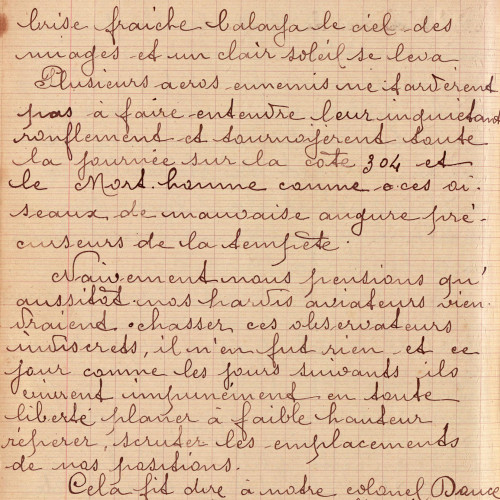 brise fraiche balaya le ciel des
nuages et un clair soleil se leva
Plusieurs aeros ennemis ne tardèrent
pas à faire entendre leur inquiétant
ronflement et tournoyèrent toute
la journée sur la côte 304 et
le Mort homme comme ces oi-
seaux de mauvaise augure pré-
curseurs de la tempête.
Naïvement nous pensions qu'
aussitôt nos hardis aviateurs vien-
draient chasser ces observateurs
indiscrets, il n'en fut rien et ce
jour comme les jours suivants ils
vinrent impunément en toute
liberté planer à faible hauteur
repérer, scruter les emplacements
de nos positions.
Cela fit dire à notre colonel